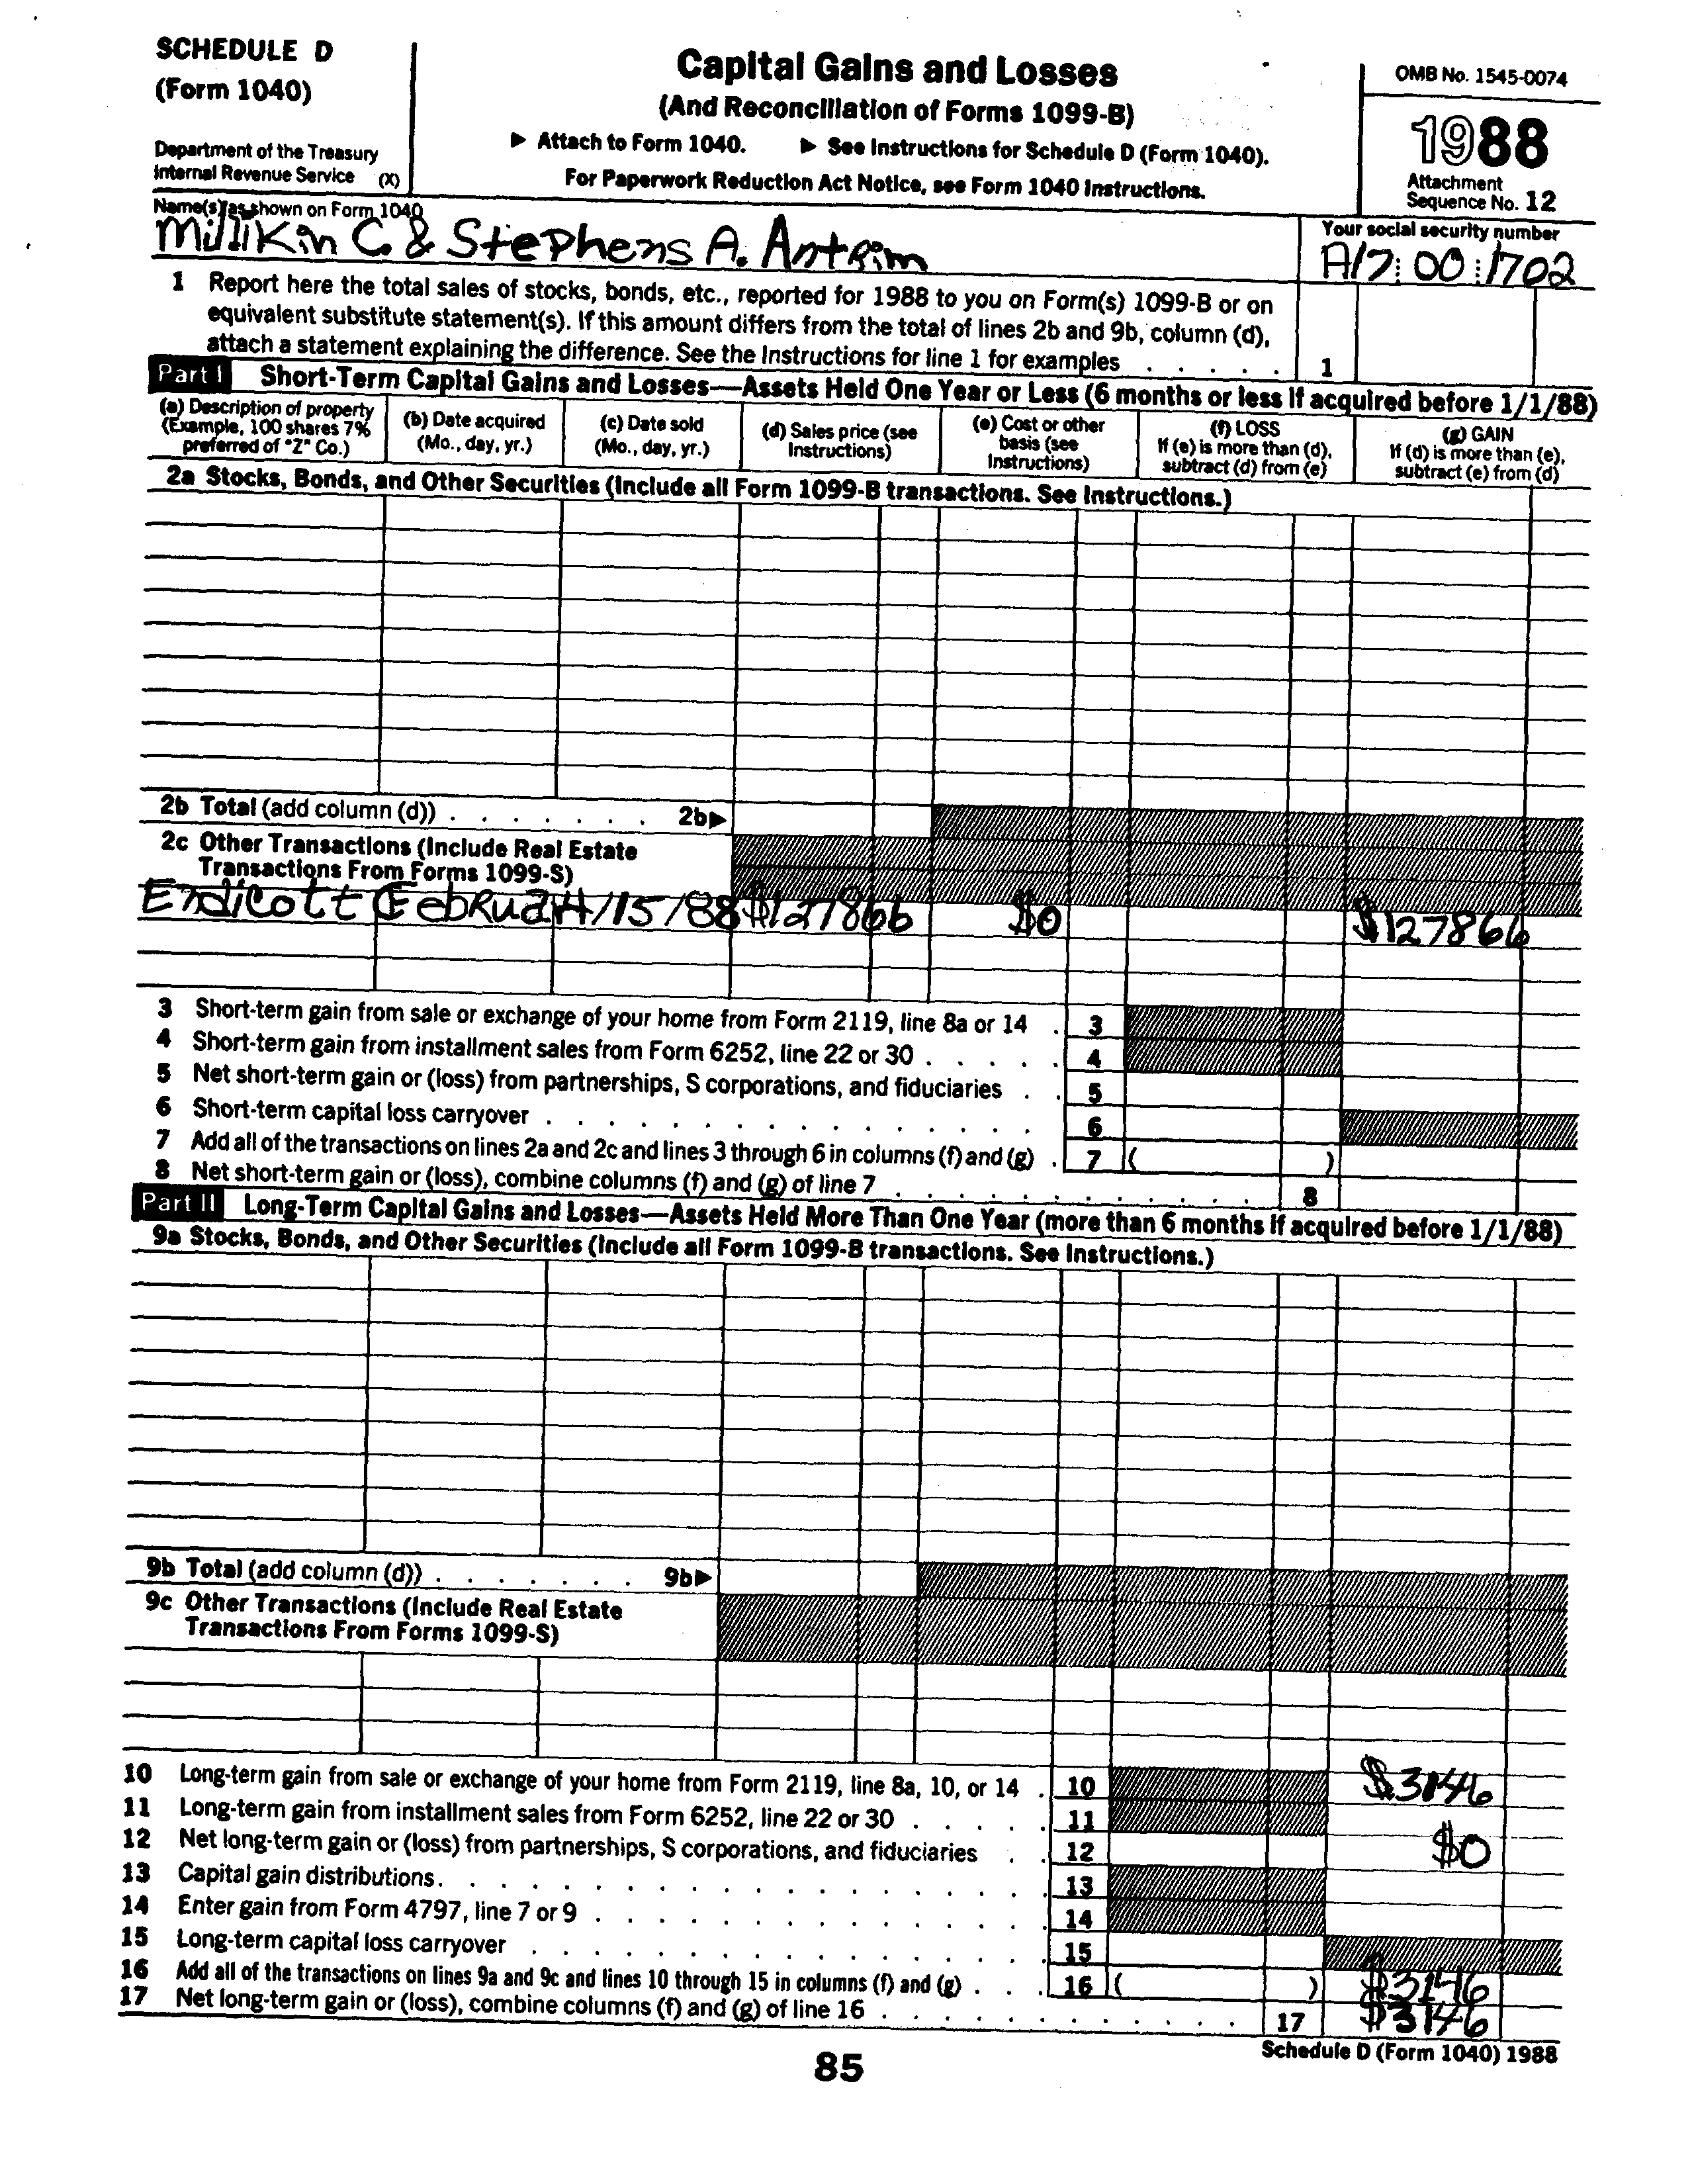 SCHEDULE D
(Form 1040)
Department of the Treasury
Internal Revenue Service (X)
Capital Gains and Losses
(And Reconciliation of Forms 1099-B)
▶ Attach to Form 1040. ▶ See Instructions for Schedule D (Form 1040).
For Paperwork Reduction Act Notice, see Form 1040 Instructions.
OMB No. 1545-0074
1988
Attachment
Sequence No. 12
Name(s) as shown on Form 1040
Millikin C. & Stephens A. Antrim
Your social security number
A17:00:1702
1 Report here the total sales of stocks, bonds, etc., reported for 1988 to you on Form(s) 1099-B or on
equivalent substitute statement(s). If this amount differs from the total of lines 2b and 9b, column (d),
attach a statement explaining the difference. See the Instructions for line 1 for examples . . . . . 1
Part I Short-Term Capital Gains and Losses—Assets Held One Year or Less (6 months or less if acquired before 1/1/88)
(a) Description of property
(Example, 100 shares 7%
preferred of "Z" Co.)
(b) Date acquired
(Mo., day, yr.)
(c) Date sold
(Mo., day, yr.)
(d) Sales price (see
Instructions)
(e) Cost or other
basis (see
Instructions)
(f) LOSS
If (e) is more than (d),
subtract (d) from (e)
(g) GAIN
If (d) is more than (e),
subtract (e) from (d)
2a Stocks, Bonds, and Other Securities (Include all Form 1099-B transactions. See Instructions.)
2b Total (add column (d)) . . . . . . . 2b▶
2c Other Transactions (Include Real Estate
Transactions From Forms 1099-S)
Endicott Februa 4/15/88 $127866 $0 $127866
3 Short-term gain from sale or exchange of your home from Form 2119, line 8a or 14 . 3
4 Short-term gain from installment sales from Form 6252, line 22 or 30 . . . . . 4
5 Net short-term gain or (loss) from partnerships, S corporations, and fiduciaries . . 5
6 Short-term capital loss carryover . . . . . . . . . . . . . . . . 6
7 Add all of the transactions on lines 2a and 2c and lines 3 through 6 in columns (f) and (g) . 7 ( )
8 Net short-term gain or (loss), combine columns (f) and (g) of line 7 . . . . . . . . . . . . 8
Part II Long-Term Capital Gains and Losses—Assets Held More Than One Year (more than 6 months if acquired before 1/1/88)
9a Stocks, Bonds, and Other Securities (Include all Form 1099-B transactions. See Instructions.)
9b Total (add column (d)) . . . . . . . 9b▶
9c Other Transactions (Include Real Estate
Transactions From Forms 1099-S)
10 Long-term gain from sale or exchange of your home from Form 2119, line 8a, 10, or 14 . 10 $3146
11 Long-term gain from installment sales from Form 6252, line 22 or 30 . . . . . . 11
12 Net long-term gain or (loss) from partnerships, S corporations, and fiduciaries . . 12 $0
13 Capital gain distributions. . . . . . . . . . . . . . . . . . . 13
14 Enter gain from Form 4797, line 7 or 9 . . . . . . . . . . . . . . 14
15 Long-term capital loss carryover . . . . . . . . . . . . . . . . 15
16 Add all of the transactions on lines 9a and 9c and lines 10 through 15 in columns (f) and (g) . . . . 16 ( ) $3146
17 Net long-term gain or (loss), combine columns (f) and (g) of line 16 . . . . . . . . . . . . 17 $3146
Schedule D (Form 1040) 1988
85